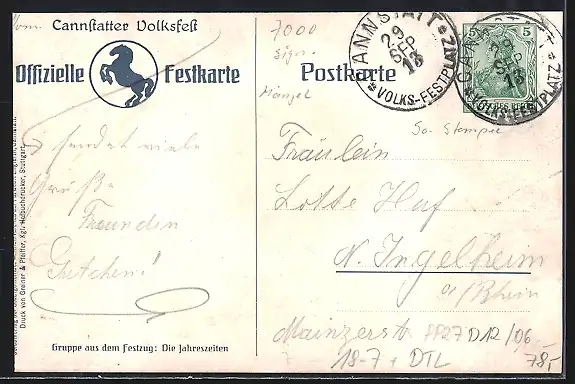 Vom Cannstatter Volksfest
Offizielle Festkarte
sendet viele
Grüße
Freundin
Gretchen!
Gruppe aus dem Festzug: Die Jahreszeiten
Druck von Greiner & Pfeiffer, Kgl. Hofbuchdrucker, Stuttgart
7000
Sign.
Mängel
Postkarte
CANNSTATT
29
SEP
13
VOLKS-FESTPLATZ
5 5
CANNSTATT
29
SEP
13
VOLKS-FESTPLATZ
So-Stempel
Fräulein
Lotte Huf
N. Ingelheim
a/Rhein
Mainzerstr
PP27 D12/06
18-7 + DTL
78,-